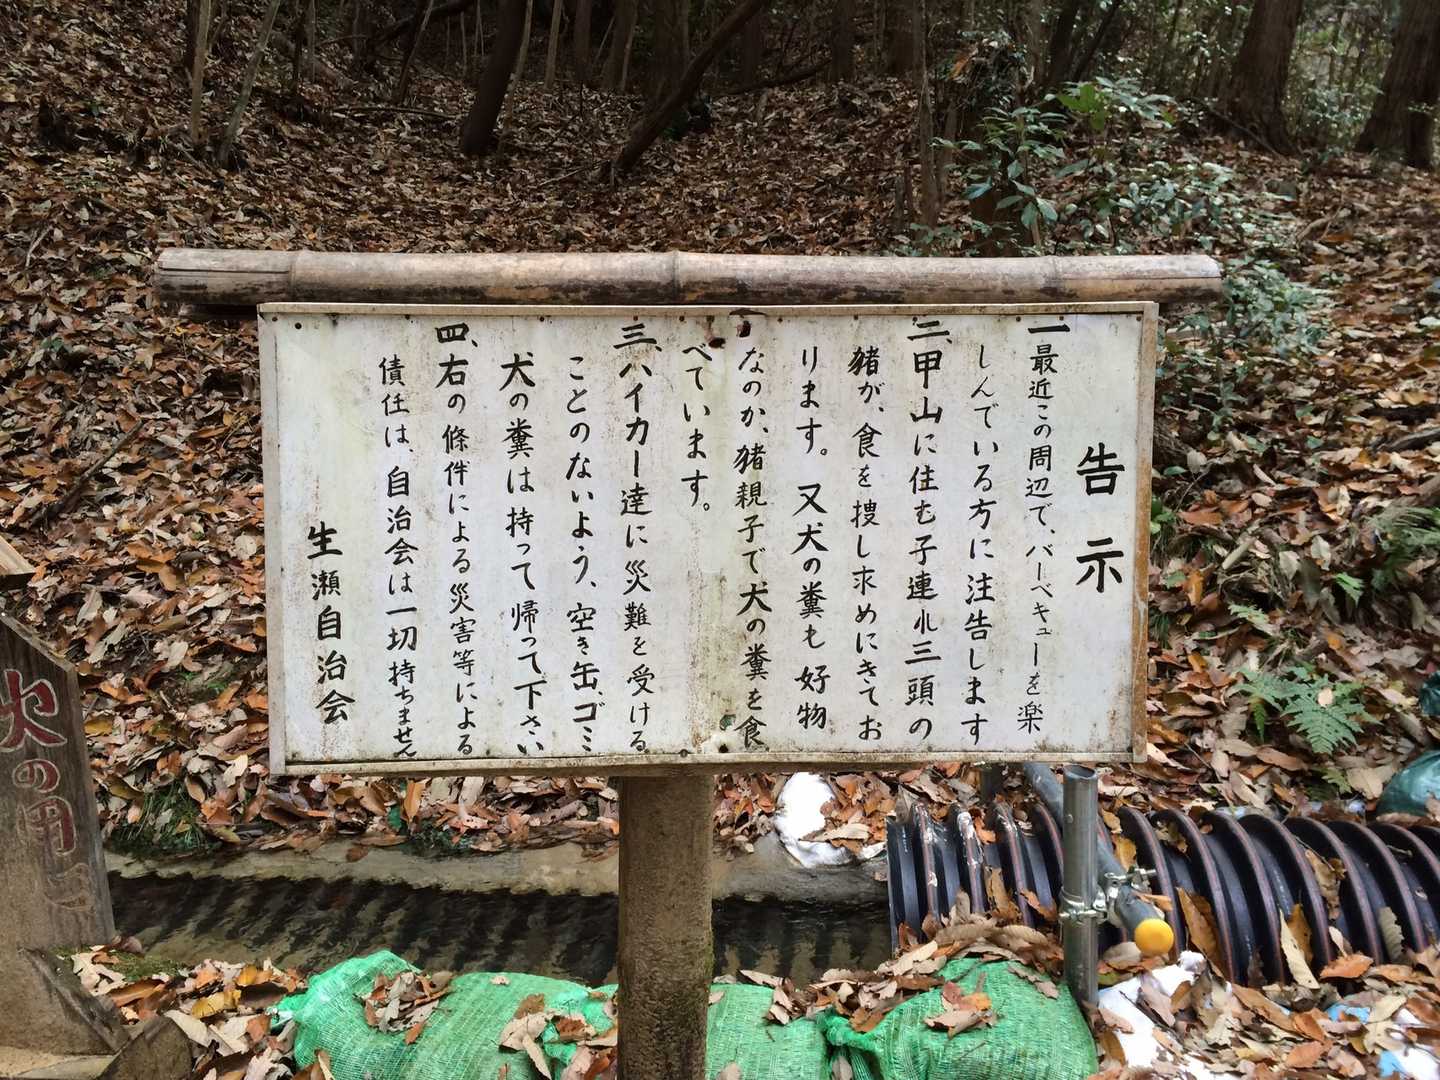 告示
一最近この周辺で、バーベキューを楽
しんでいる方に注告します
二、甲山に住む子連れ三頭の
猪が、食を捜し求めにきてお
ります。又犬の糞も好物
なのか、猪親子で犬の糞を食
べています。
三、ハイカー達に災難を受ける
ことのないよう、空き缶、ゴミ
犬の糞は持って帰って下さい
四、右の條件による災害等による
債任は、自治会は一切持ちません
生瀬自治会
火の用心